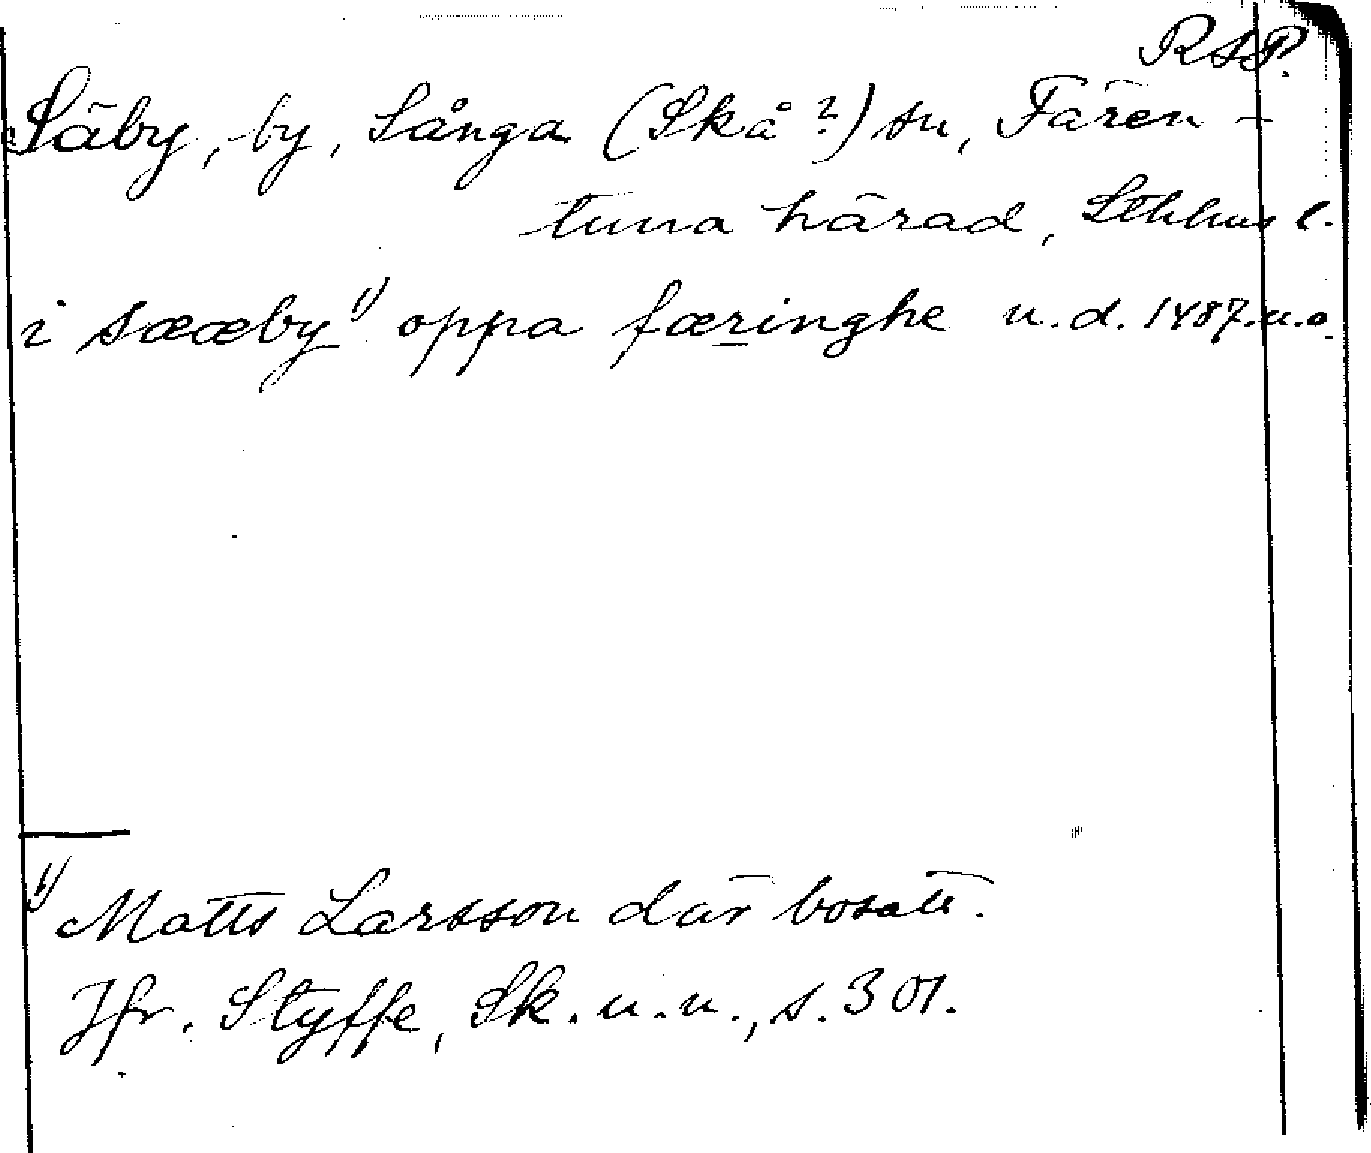 RAP.
Säby, by, Sånga (Skå?) sn, Fären-
tuna härad, Sthlms l.
i sææby¹⁾ oppa færinghe u.d. 1487.u.o.
¹⁾ Matts Larsson där bosatt.
Jfr. Styffe, Sk. u. u., s. 301.